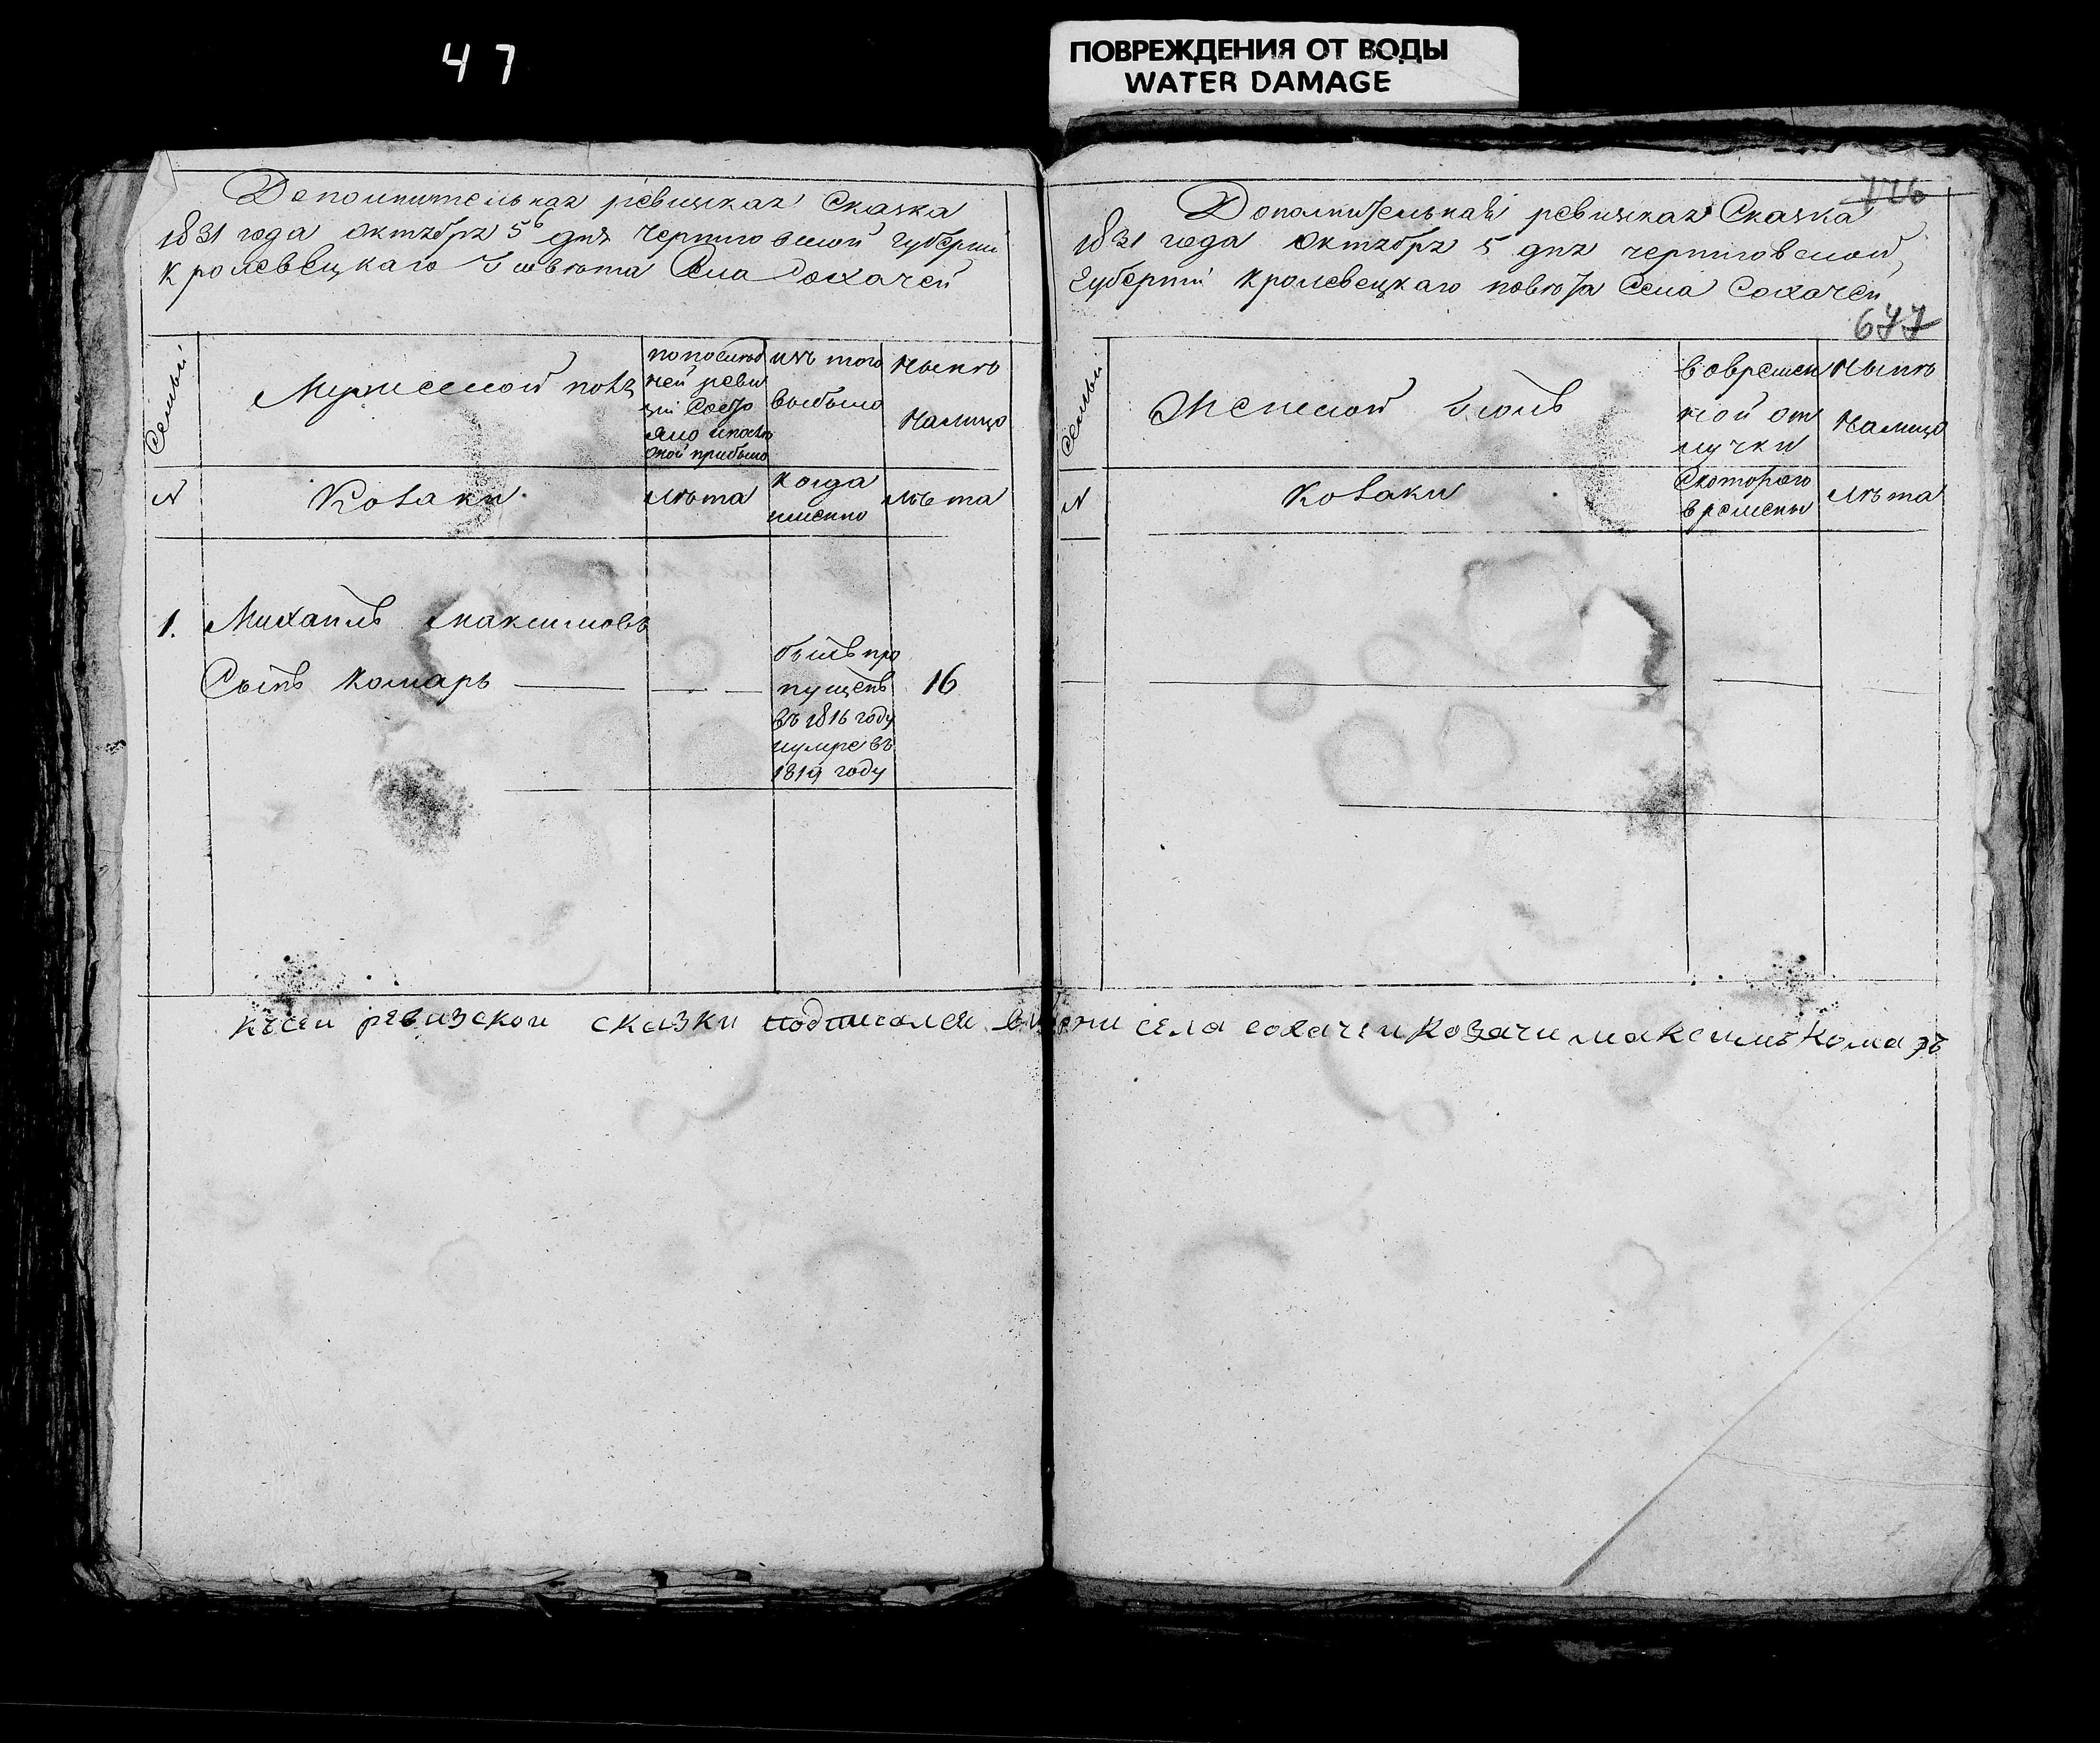 47
ПОВРЕЖДЕНИЯ ОТ ВОДЫ
WATER DAMAGE
Дополнительная ревизкая Сказка
1831 года октября 5 дня Черниговской Губернии
Кролевецкаго Повѣта Села Сохачей
Семьи
Мужеской полъ
по послѣд
ней реви
зіи Состо
яло и после
оной прибыло
изъ того
выбыло
Нынѣ
Налицо
№
Козаки
лѣта
когда
именно
лѣта
1.
Михаилъ Максимовъ
Сынъ Комаръ
былъ про
пущенъ
въ 1816 году
въ
1819 году
16
726
Дополнительная ревизкая Сказка
1831 года октября 5 дня Черниговской
Губернии Кролевецкаго повѣта Села Сохачей
677
Семьи
Женской полъ
во времен
ной от
лучки
Нынѣ
Налицо
№
Козаки
С котораго
времени
лѣта
к сеи ревизскои сказки подписался села сохачеи козачи максимъ комаръ